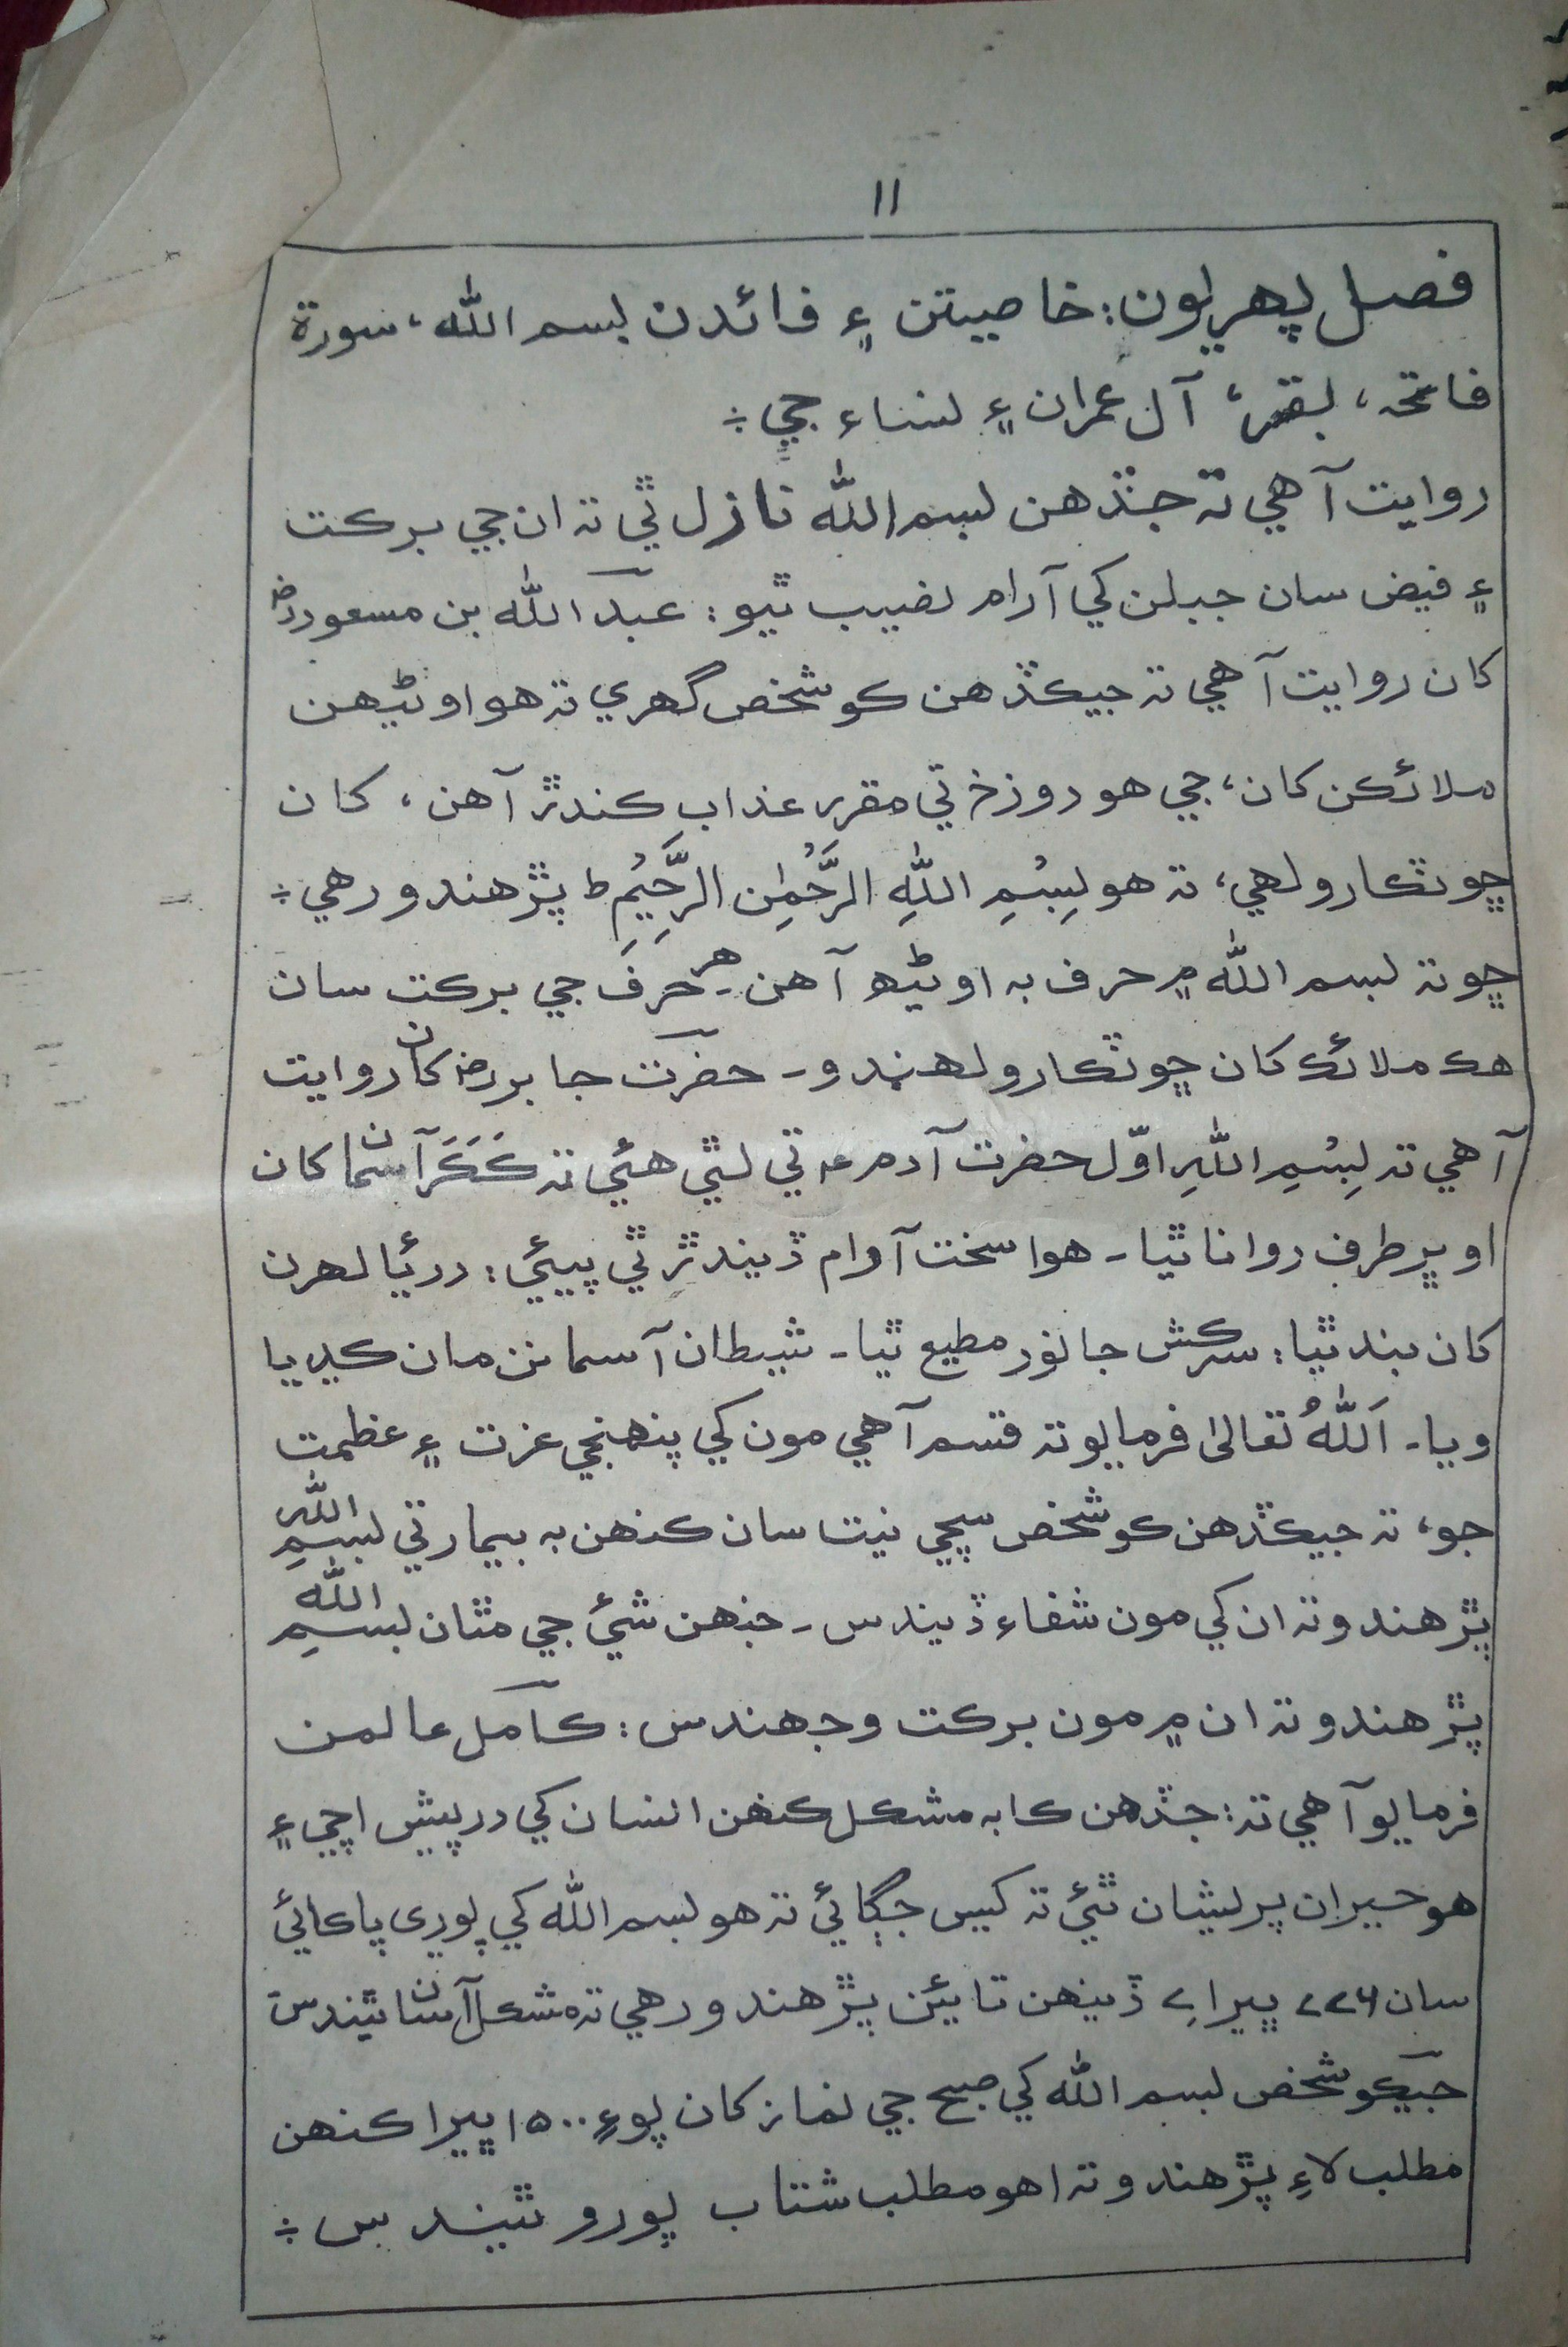 ۱۱
فصل پهريون: خاصيتن ۽ فائدن بسم الله، سورة
فاتحہ، بقر، آل عمران ۽ نساء جي ÷
روايت آهي تہ جڏهن بسم الله نازل ٿي تہ ان جي برڪت
۽ فيض سان جبلن کي آرام نصيب ٿيو: عبدالله بن مسعود رضہ
کان روايت آهي تہ جيڪڏهن ڪو شخص گهري تہ هو اوڻيهن
ملائڪن کان، جي هو دوزخ تي مقرر عذاب ڪندڙ آهن، کان
ڇوٽڪارو لهي، تہ هو بِسْمِ اللهِ الرَّحْمٰنِ الرَّحِيْمِ ط پڙهندو رهي ÷
ڇو تہ بسم الله ۾ حرف بہ اوڻيهہ آهن۔ هر حرف جي برڪت سان
هڪ ملائڪ کان ڇوٽڪارو لهندو۔ حضرت جابر رضہ کان روايت
آهي تہ بِسْمِ اللهِ اوّل حضرت آدم عہ تي لٿي هئي تہ ڪَڪَرَ آسمان کان
اوڀر طرف روانا ٿيا۔ هوا سخت آرام ڏيندڙ ٿي پيئي: دريا لهرن
کان بند ٿيا: سرڪش جانور مطيع ٿيا۔ شيطان آسمانن مان ڪڍيا
ويا۔ اَللهُ تعاليٰ فرمايو تہ قسم آهي مون کي پنهنجي عزت ۽ عظمت
جو، تہ جيڪڏهن ڪو شخص سچي نيت سان ڪنهن بہ بيمار تي بسمِ اللهِ
پڙهندو تہ ان کي مون شفاء ڏيندس۔ جنهن شئي جي مٿان بسمِ الله
پڙهندو تہ ان ۾ مون برڪت وجهندس: ڪامل عالمن
فرمايو آهي تہ: جڏهن ڪا بہ مشڪل ڪنهن انسان کي درپيش اچي ۽
هو حيران پريشان ٿئي تہ کيس جڳائي تہ هو بسم الله کي پوري پاڪائي
سان ۷۷۶ ڀيرا ۷ ڏينهن تائين پڙهندو رهي تہ مشڪل آسان ٿيندس
جيڪو شخص بسم الله کي صبح جي نماز کان پوءِ ۱۵۰۰ ڀيرا ڪنهن
مطلب لاءِ پڙهندو تہ اهو مطلب شتاب پورو ٿيندس ÷